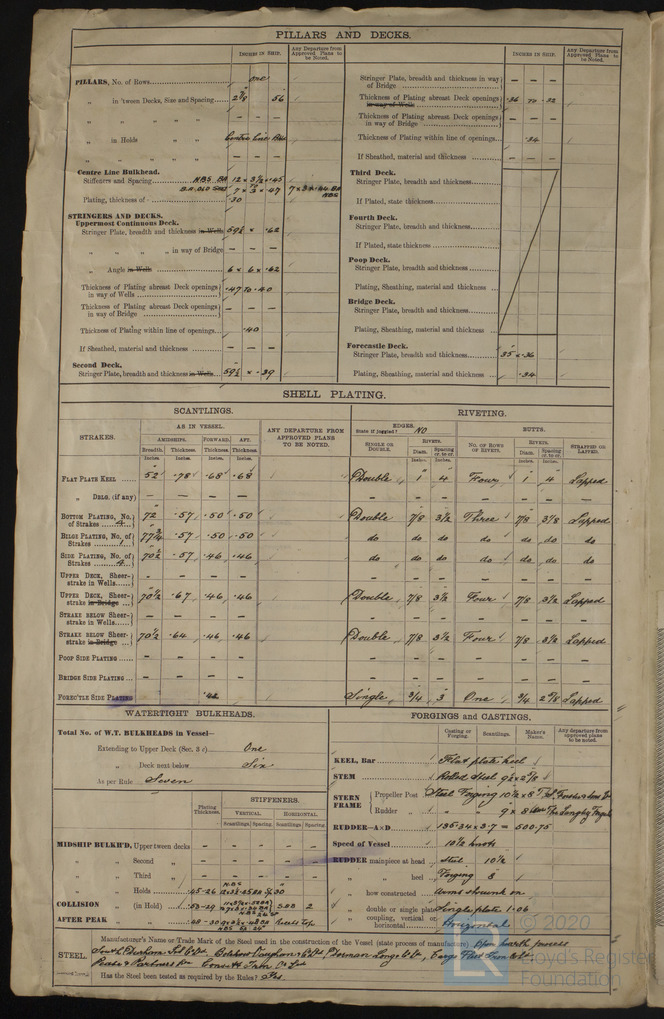 PILLARS AND DECKS.
INCHES IN SHIP.
Any Departure from Approved Plans to be Noted.
PILLARS, No. of Rows
one
„ in 'tween Decks, Size and Spacing
2 7/8 56
„ „ „ „ — —
„ in Holds „
Centre Line Bhd
„ „ „ „ — —
Centre Line Bulkhead.
Stiffeners and Spacing
12 × 3½ × .45
7 × 3 × .47
Plating, thickness of
.30
STRINGERS AND DECKS.
Uppermost Continuous Deck.
Stringer Plate, breadth and thickness in Wells
59½ × .62
„ „ „ „ in way of Bridge — —
„ Angle in Wells
6 × 6 × .62
Thickness of Plating abreast Deck openings in way of Wells
.47 TO .40
Thickness of Plating abreast Deck openings in way of Bridge — —
Thickness of Plating within line of openings
.40
If Sheathed, material and thickness — — —
Second Deck.
Stringer Plate, breadth and thickness in Wells
59½ × .39
INCHES IN SHIP.
Any Departure from Approved Plans to be Noted.
Stringer Plate, breadth and thickness in way of Bridge — —
Thickness of Plating abreast Deck openings in way of Wells
.36 TO .32
Thickness of Plating abreast Deck openings in way of Bridge — —
Thickness of Plating within line of openings
.34
If Sheathed, material and thickness — — —
Third Deck.
Stringer Plate, breadth and thickness
If Plated, state thickness
Fourth Deck.
Stringer Plate, breadth and thickness
If Plated, state thickness
Poop Deck.
Stringer Plate, breadth and thickness
Plating, Sheathing, material and thickness
Bridge Deck.
Stringer Plate, breadth and thickness
Plating, Sheathing, material and thickness
Forecastle Deck.
Stringer Plate, breadth and thickness
35 × .36
Plating, Sheathing, material and thickness
.34
SHELL PLATING.
SCANTLINGS.
RIVETING.
STRAKES.
AS IN VESSEL.
AMIDSHIPS. FORWARD. AFT.
Breadth. Thickness. Thickness. Thickness.
Inches. Inches. Inches. Inches.
ANY DEPARTURE FROM APPROVED PLANS TO BE NOTED.
EDGES.
State if joggled? NO
SINGLE OR DOUBLE.
RIVETS.
Diam. Spacing cr. to cr.
Inches. Inches.
BUTTS.
NO. OF ROWS OF RIVETS.
RIVETS.
Diam. Spacing cr. to cr.
Inches. Inches.
STRAPPED OR LAPPED.
FLAT PLATE KEEL 52 .78 .68 .68 Double 1 4 Four 1 4 Lapped
„ DBLG. (if any) — — — — — — — — — — —
BOTTOM PLATING, No. of Strakes 4 72 .57 .50 .50 Double 7/8 3½ Three 7/8 3 1/8 Lapped
BILGE PLATING, No. of Strakes 1 77¾ .57 .50 .50 do do do do do do do
SIDE PLATING, No. of Strakes 4 70½ .57 .46 .46 do do do do do do do
UPPER DECK, Sheerstrake in Wells — — — — — — — — — — —
UPPER DECK, Sheerstrake in Bridge 70½ .67 .46 .46 Double 7/8 3½ Four 7/8 3½ Lapped
STRAKE BELOW Sheerstrake in Wells — — — — — — — — — — —
STRAKE BELOW Sheerstrake in Bridge 70½ .64 .46 .46 Double 7/8 3½ Four 7/8 3½ Lapped
POOP SIDE PLATING — — — — — — — — — — —
BRIDGE SIDE PLATING — — — — — — — — — — —
FOREC'TLE SIDE PLATING .42 Single 3/4 3 One 3/4 2 5/8 Lapped
WATERTIGHT BULKHEADS.
Total No. of W.T. BULKHEADS in Vessel—
Extending to Upper Deck (Sec. 3 c) One
„ Deck next below Six
As per Rule Seven
Plating Thickness.
STIFFENERS.
VERTICAL. HORIZONTAL.
Scantlings Spacing. Scantlings Spacing
MIDSHIP BULKH'D, Upper tween decks — — — — —
„ „ Second „ — — — — —
„ „ Third „ — — — — —
„ „ Holds .45-.26 30
COLLISION „ (in Hold) .53-.29 2
AFTER PEAK „ „ Recess Top
FORGINGS and CASTINGS.
Casting or Forging. Scantlings. Maker's Name. Any departure from approved plans to be noted.
KEEL, Bar Flat plate keel
STEM Rolled Steel 9½ × 2 5/8
STERN FRAME
Propeller Post Steel Forging 10½ × 8
Rudder „ „ „ 9 × 8
RUDDER—A×D 135.34 × 3.7 = 500.75
Speed of Vessel 10½ knots
RUDDER mainpiece at head Steel 10½
„ „ heel Forging 8
„ how constructed arms shrunk on
„ double or single plate Single plate 1.06
„ coupling, vertical or horizontal Horizontal
Manufacturer's Name or Trade Mark of the Steel used in the construction of the Vessel (state process of manufacture). Open hearth process
STEEL. South Durham Stl Co Ltd, Bolckow Vaughan & Co Ltd, Dorman Long & Co Ltd, Cargo Fleet Iron Co Ltd.
Pease & Partners Ltd Consett Iron Co Ltd
Has the Steel been tested as required by the Rules? Yes.
© 2020
LR
Lloyd's Register
Foundation